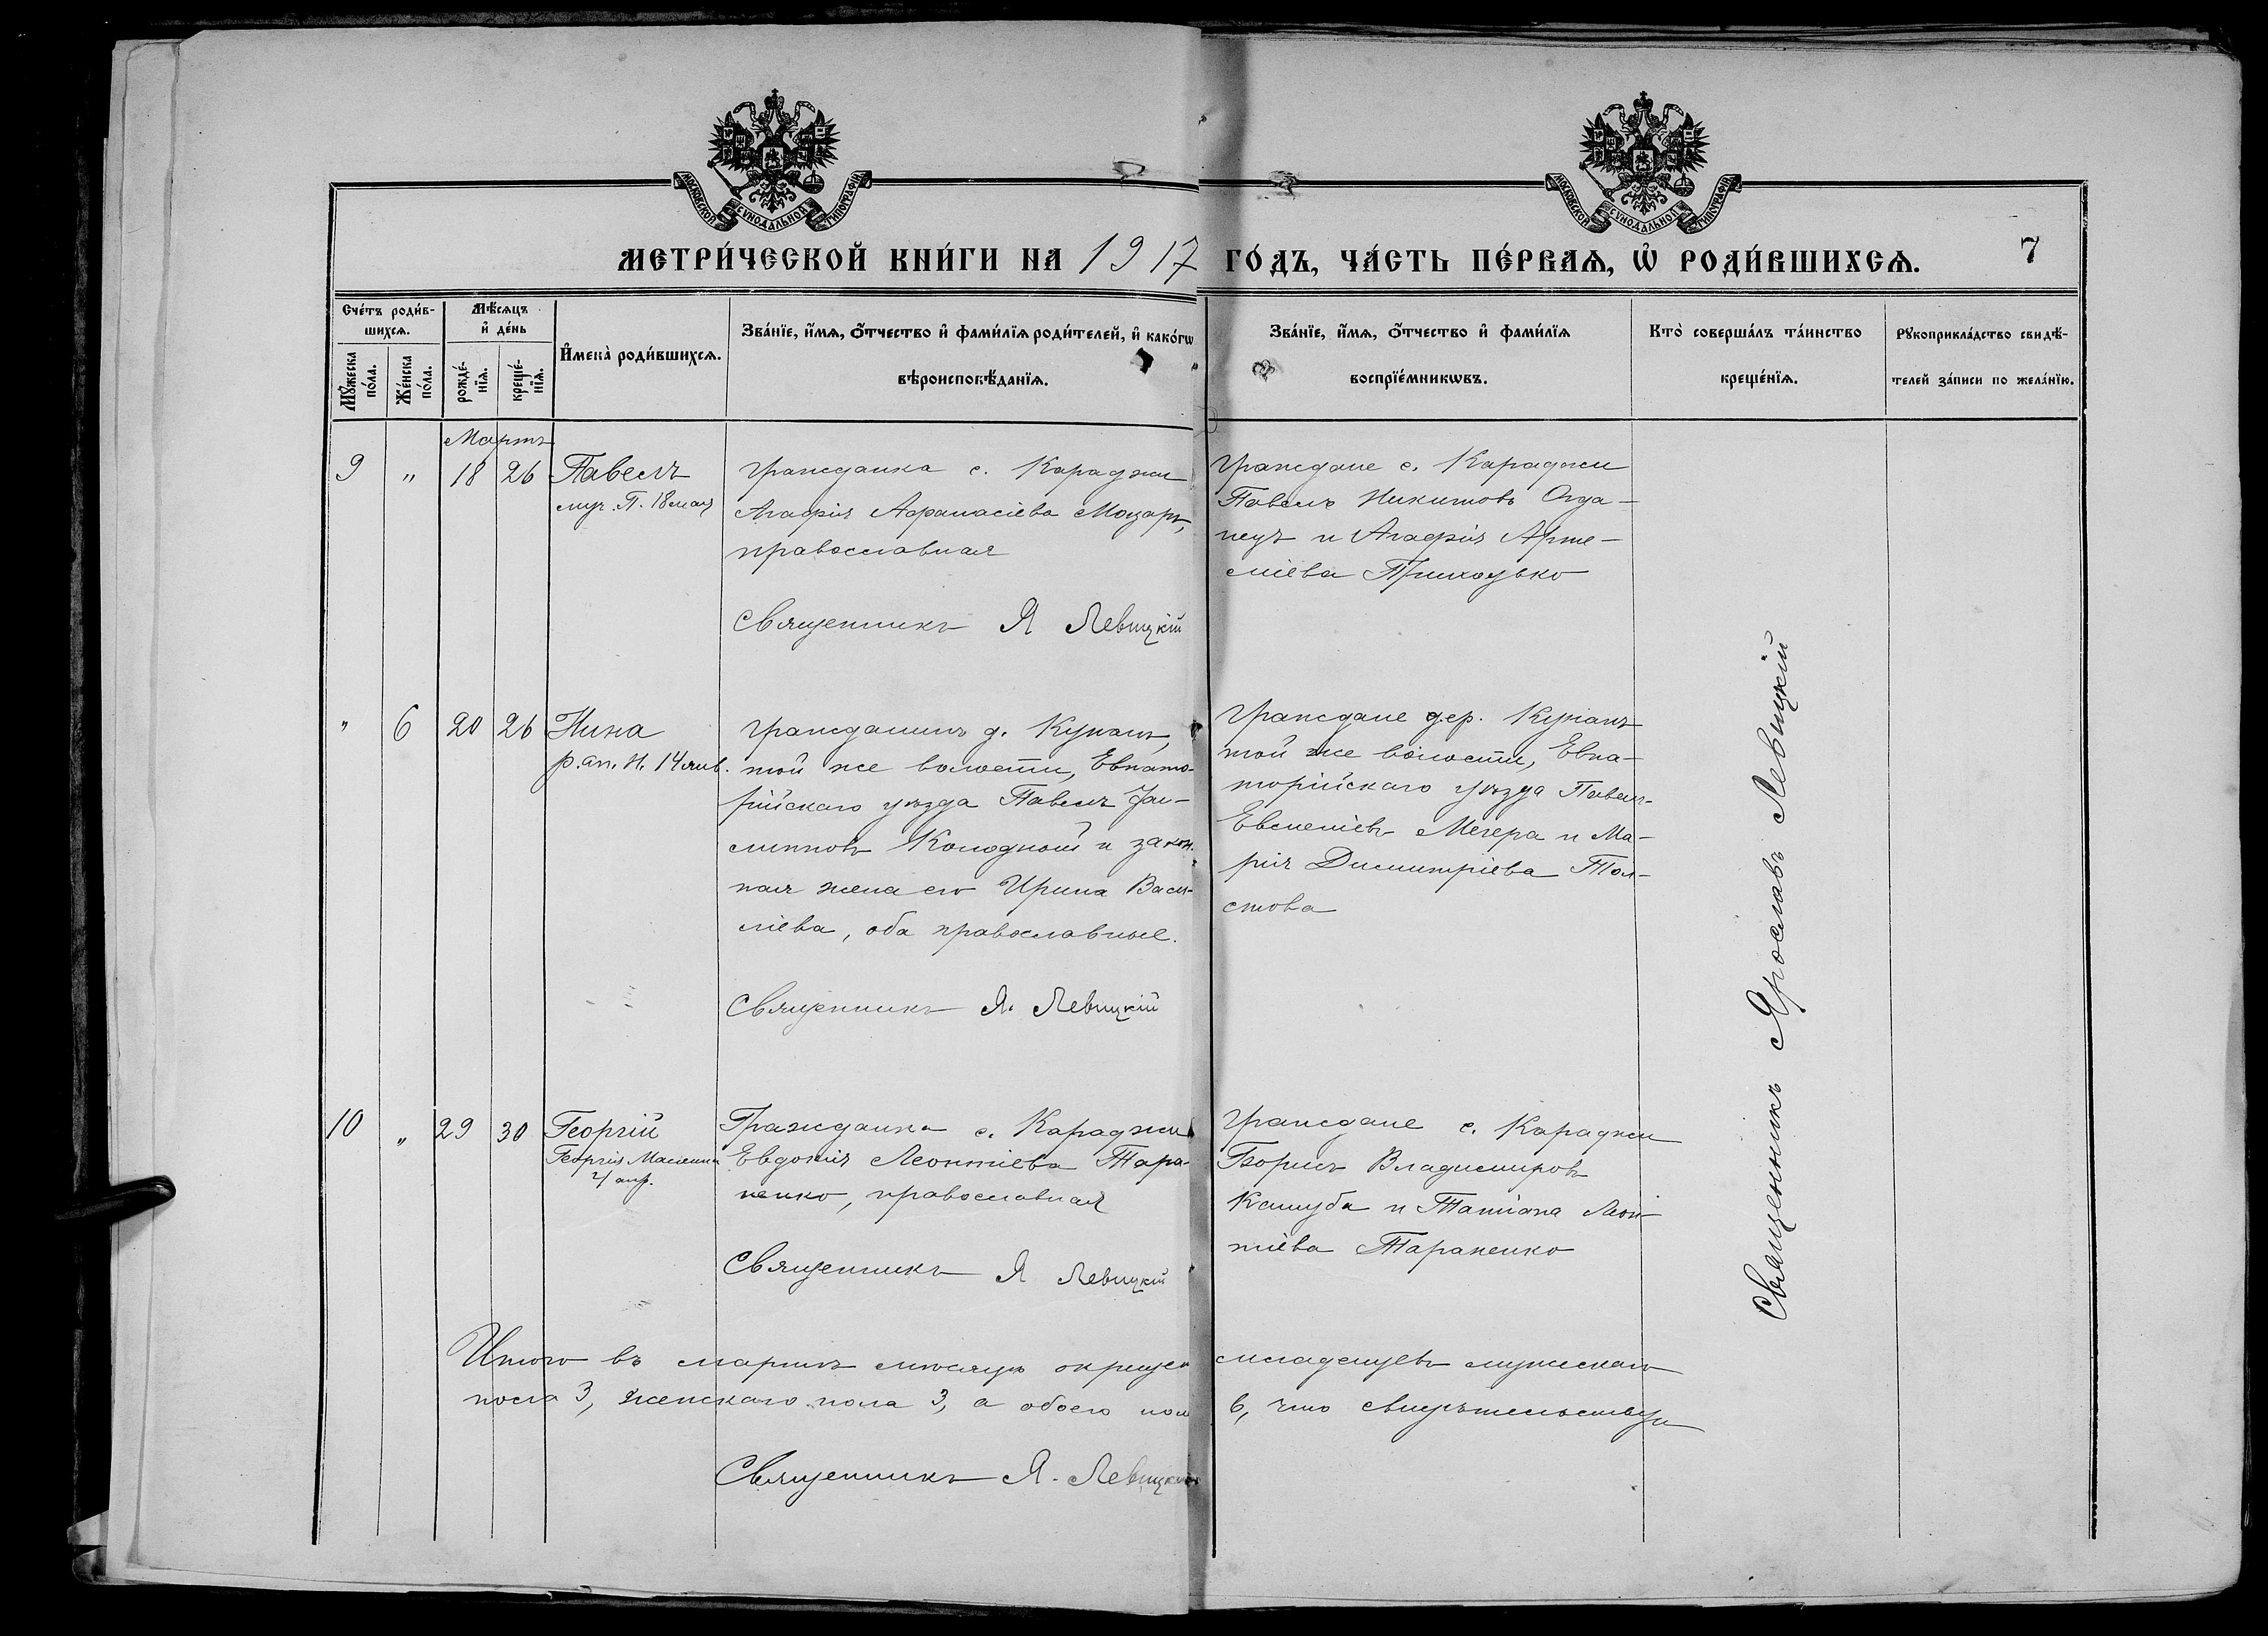 МОСКОВСКОЙ СѴНОДАЛЬНОЙ ТИПОГРАФІИ
МОСКОВСКОЙ СѴНОДАЛЬНОЙ ТИПОГРАФІИ
МЕТРИ́ЧЕСКОЙ КНИ́ГИ НА 1917 ГО́ДЪ, ЧА́СТЬ ПЕ́РВАѦ, Ѡ҆ РОДИ́ВШИХСѦ.
7
Сче́тъ роди́в-
шихсѧ.
Мѣ́сяцъ
и҆ де́нь
Мꙋ́жеска
по́ла.
Же́нска
по́ла.
рожде́-
нїѧ.
креще́-
нїѧ.
И҆мена̀ роди́вшихсѧ.
Зва́нїе, и҆́мѧ, ѻ҆́тчество и҆ фами́лїѧ роди́телей, и҆ како́гѡ
вѣроисповѣ́данїѧ.
Зва́нїе, и҆́мѧ, ѻ҆́тчество и҆ фами́лїѧ
воспрїе́мникѡвъ.
Кто̀ соверша́лъ та́инство
креще́нїѧ.
Рꙋкоприкла́дство свидѣ́-
телей за́писи по жела́нїю.
Мартъ
9 " 18 26 Павелъ
муч. П. 18 мая
Гражданка с. Караджи
Агафія Афанасіева Моцарь,
православная
Священникъ Я Левицкій
Граждане с. Караджи
Павелъ Никитовъ Ода-
нецъ и Агафія Арте-
міева Приходько
" 6 20 26 Нина
р. ап. Н. 14 янв.
Гражданинъ д.
той же волости, Евпато-
рійскаго уѣзда Павелъ
Колодной и закон.
ная жена его Ирина Васи-
ліева, оба православные.
Священникъ Я. Левицкій
Граждане дер.
той же волости, Евпа-
торійскаго уѣзда Павелъ
Евсигніевъ Мегера и Ма-
рія Димитріева Тол-
стова
10 " 29 30 Георгій
Георгія
4 апр.
Гражданка с. Караджи
Евдокія Леонтіева Тара-
ненко, православная
Священникъ Я Левицкій
Граждане с. Караджи
Борисъ Владимировъ
Кашуба и Татіана Леон-
тіева Тараненко
Священникъ Ярославъ Левицкій
Итого въ мартѣ мѣсяцѣ окрещен младенцевъ мужескаго
пола 3, женскаго пола 3, а обоего пола 6, что свидѣтельствую
Священникъ Я. Левицкій